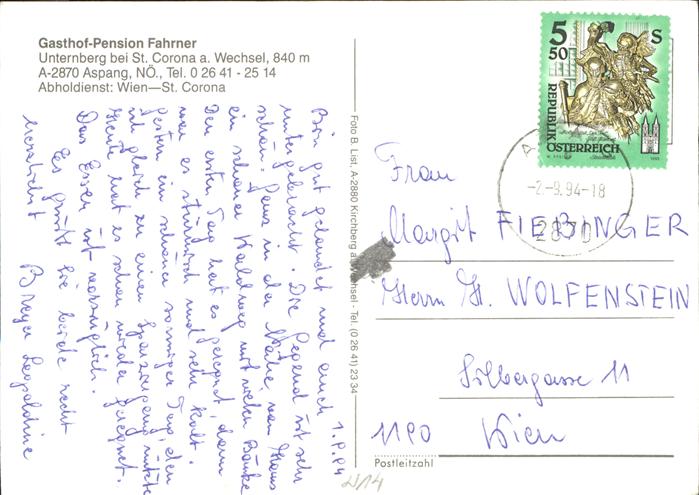 Gasthof-Pension Fahrner
Unternberg bei St. Corona a. Wechsel, 840 m
A-2870 Aspang, NÖ., Tel. 0 26 41 - 25 14
Abholdienst: Wien—St. Corona
1.9.94
Bin gut gelandet und auch
untergebracht. Die Gegend ist sehr
schön. Ganz in der Nähe vom Haus
ein schöner Waldweg mit vielen Bänke
Den ersten Tag hat es geregnet, dann
war es stürmisch und sehr kalt.
Gestern ein schöner sonniger Tag, den
ich gleich zu einen Spaziergang nützte
Heute hat es schon wieder geregnet.
Das Essen ist vorzüglich.
Es grüßt Sie beide recht
herzlichst
Breyer Leopoldine
Foto B. List, A-2880 Kirchberg a. Wechsel - Tel. (0 26 41) 23 34
5 50 S
REPUBLIK
ÖSTERREICH
-2.-9.94-18
2870
Frau
Margit FIEBINGER
Herrn H. WOLFENSTEIN
Silbergasse 11
1190 Wien
Postleitzahl